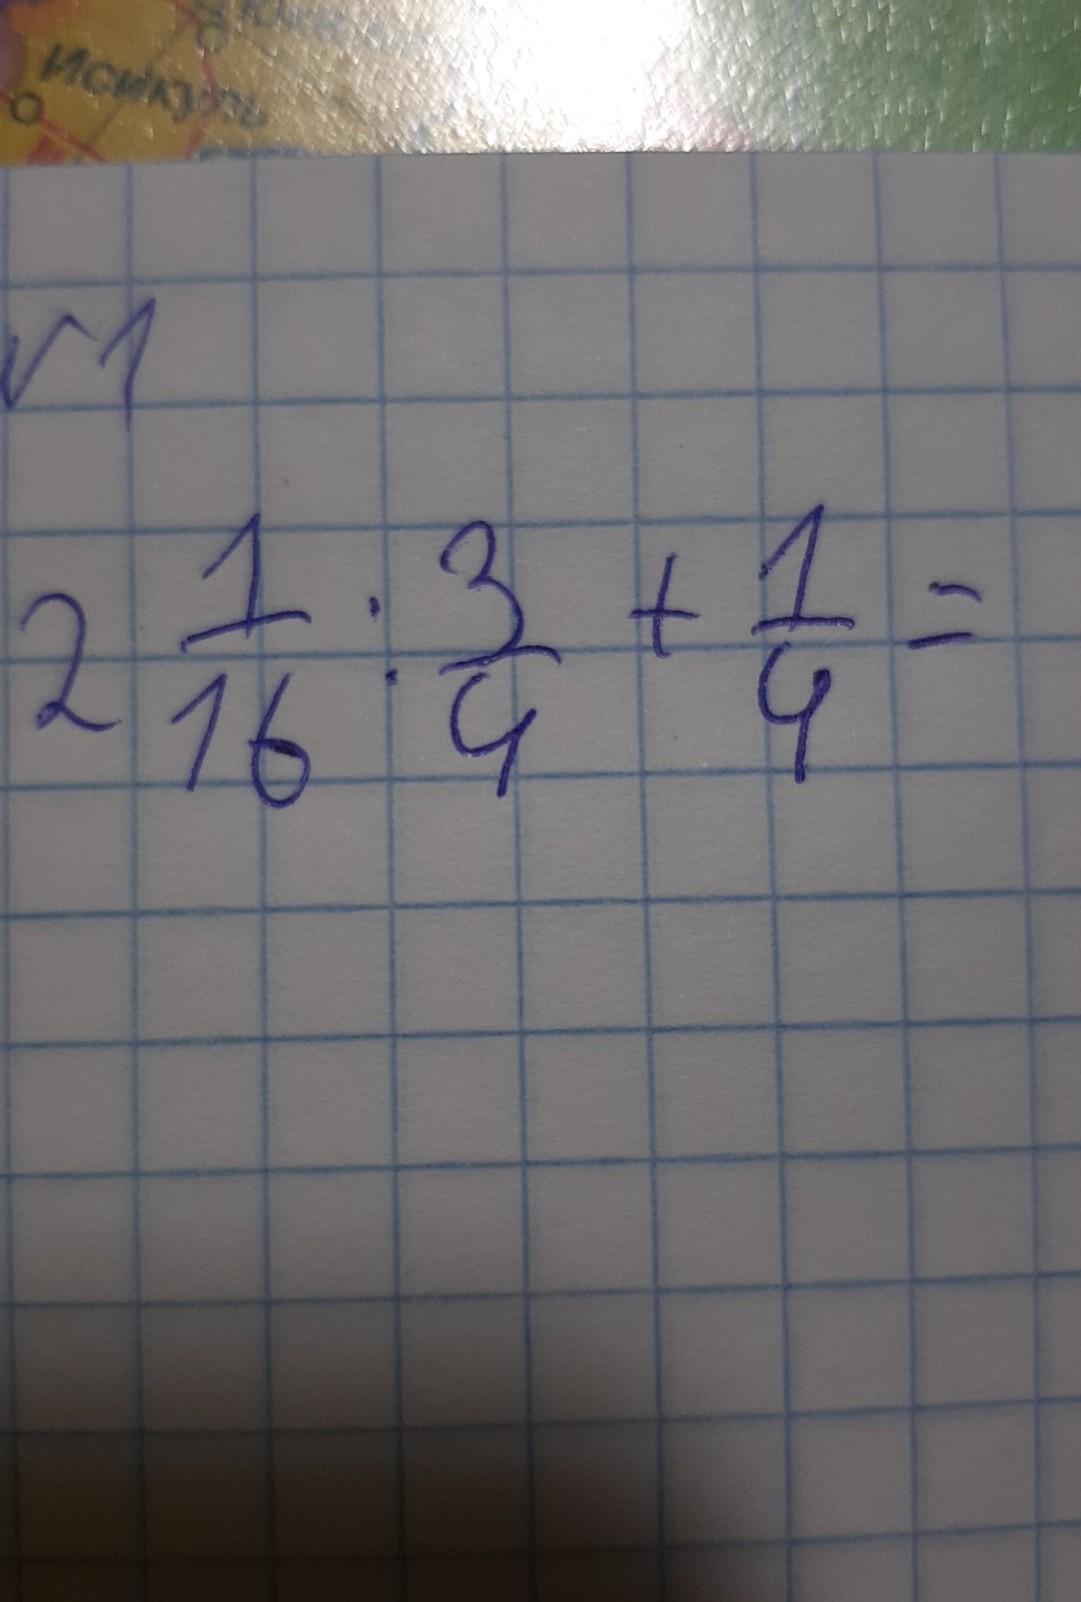 Исилкуль
№1
2 1/16 : 3/4 + 1/4 =